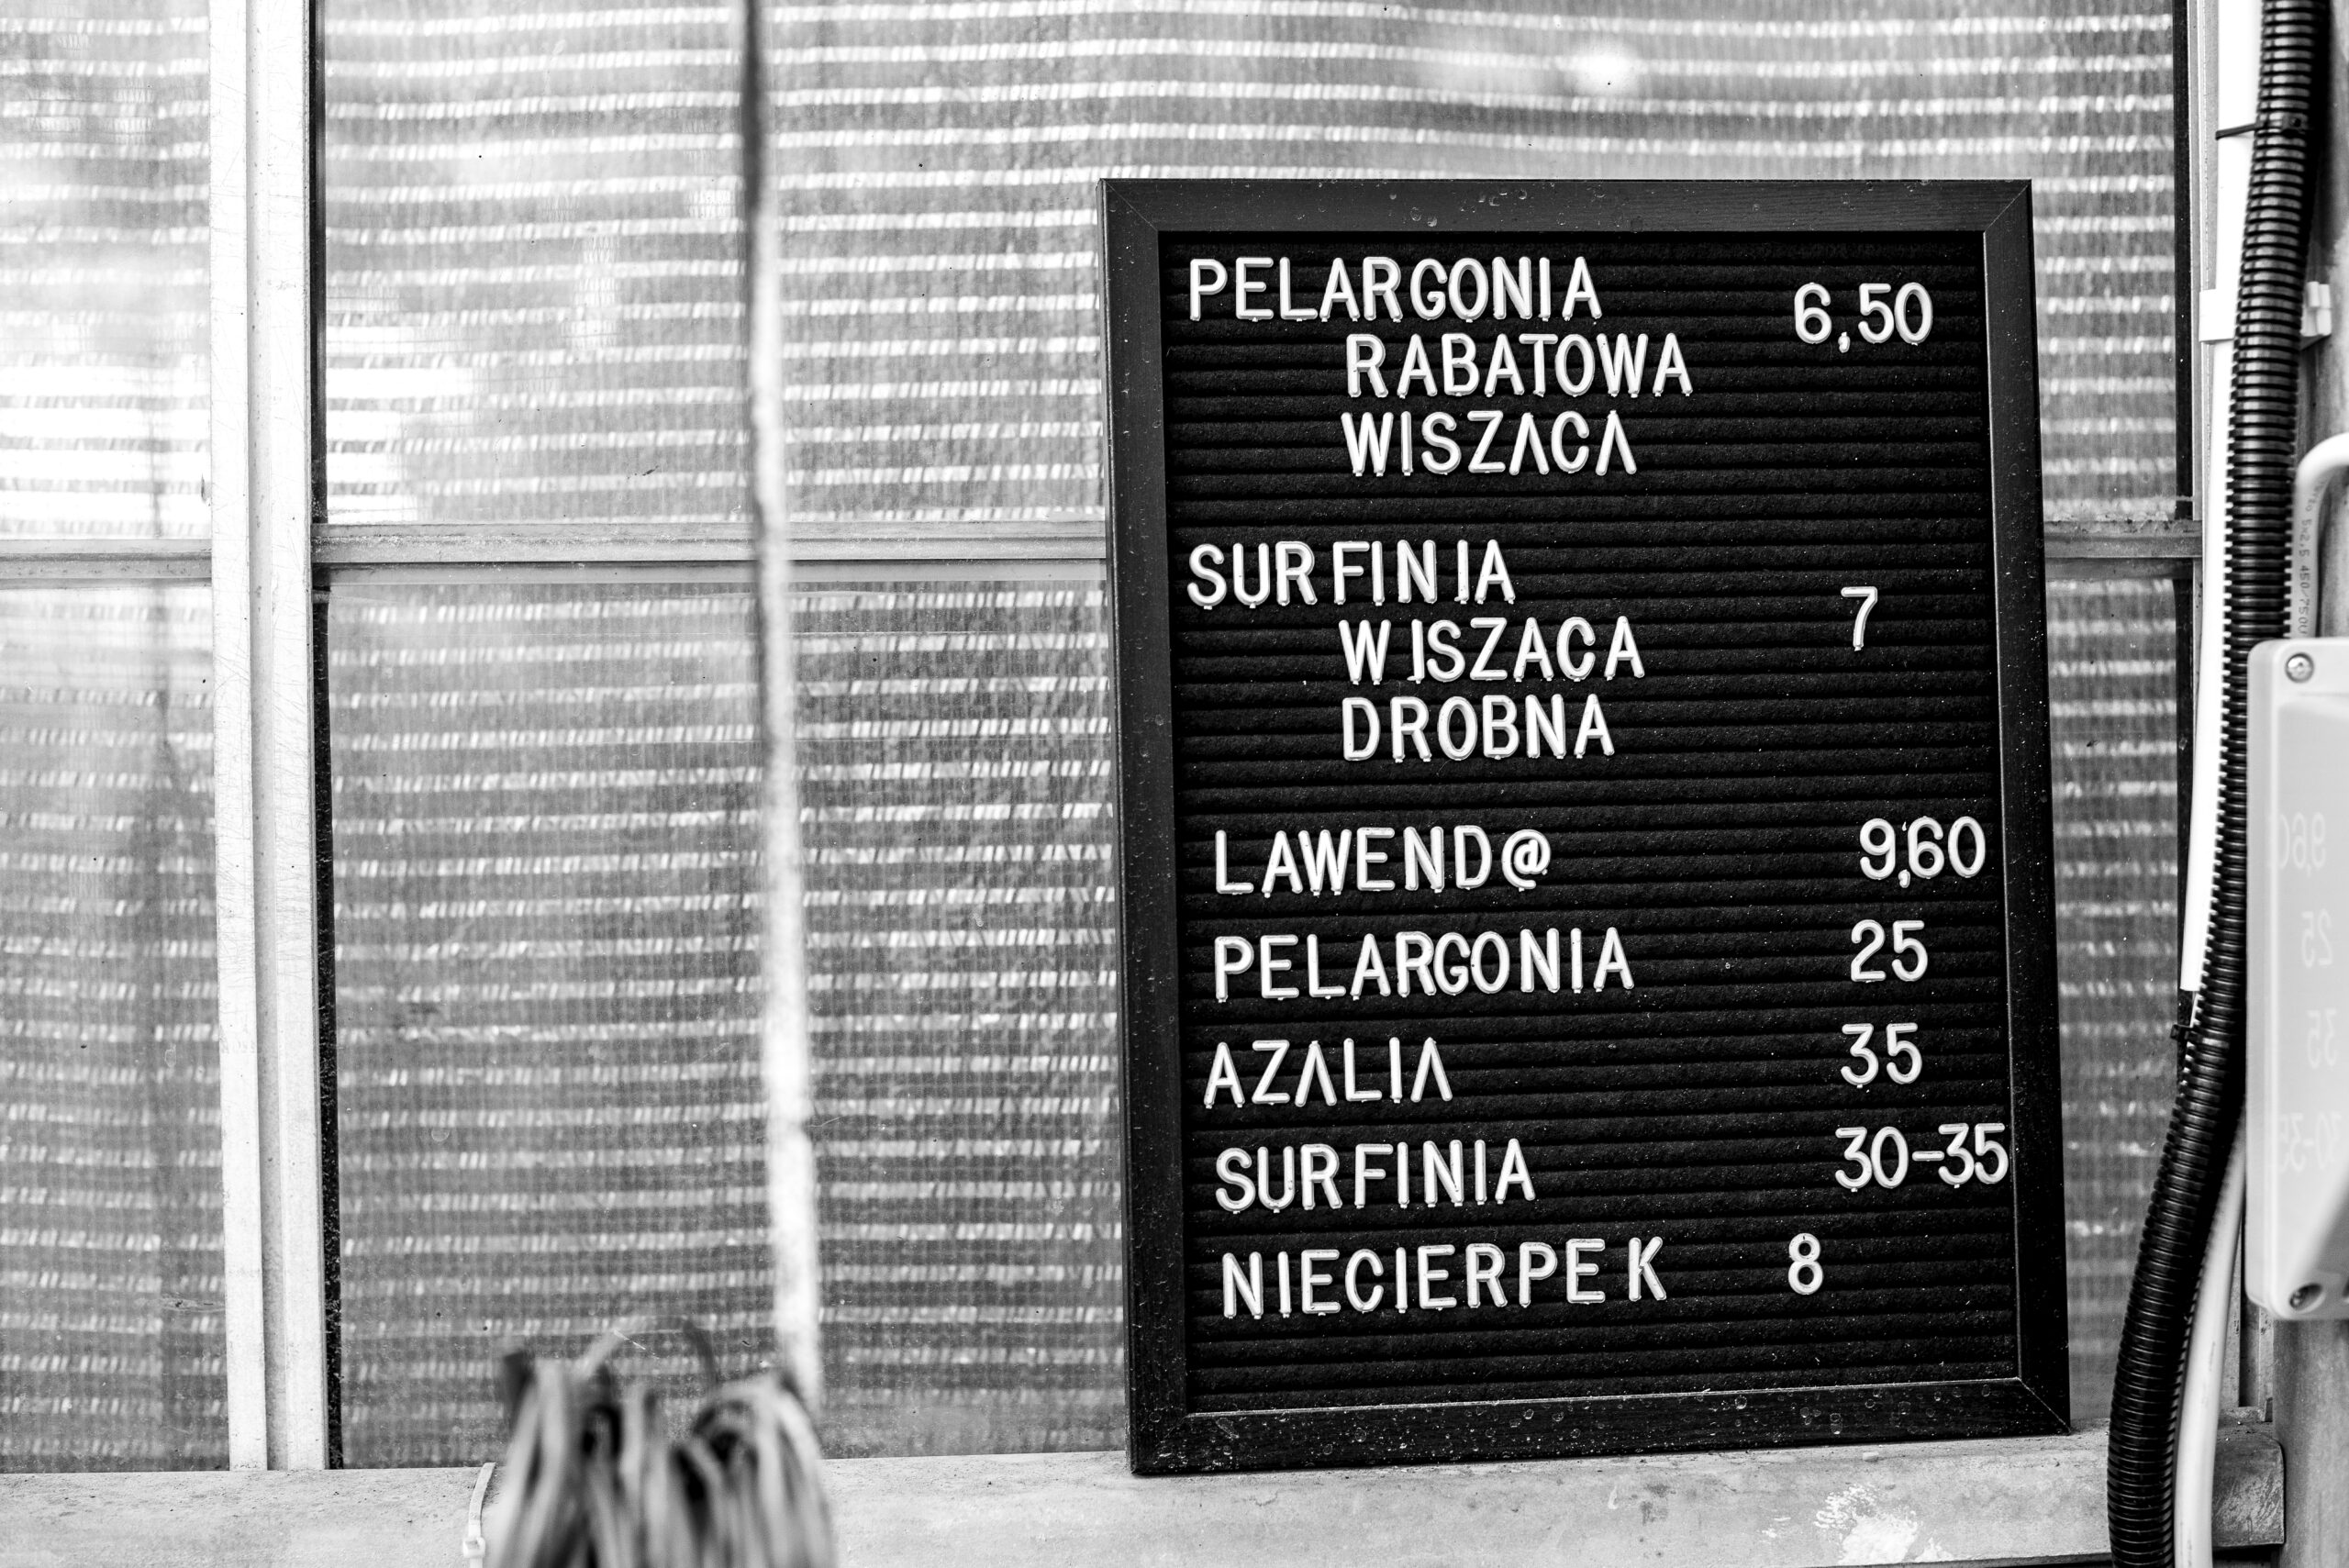 PELARGONIA 6,50
RABATOWA
WISZACA
SURFINIA
WISZACA 7
DROBNA
LAWEND@ 9,60
PELARGONIA 25
AZALIA 35
SURFINIA 30-35
NIECIERPEK 8